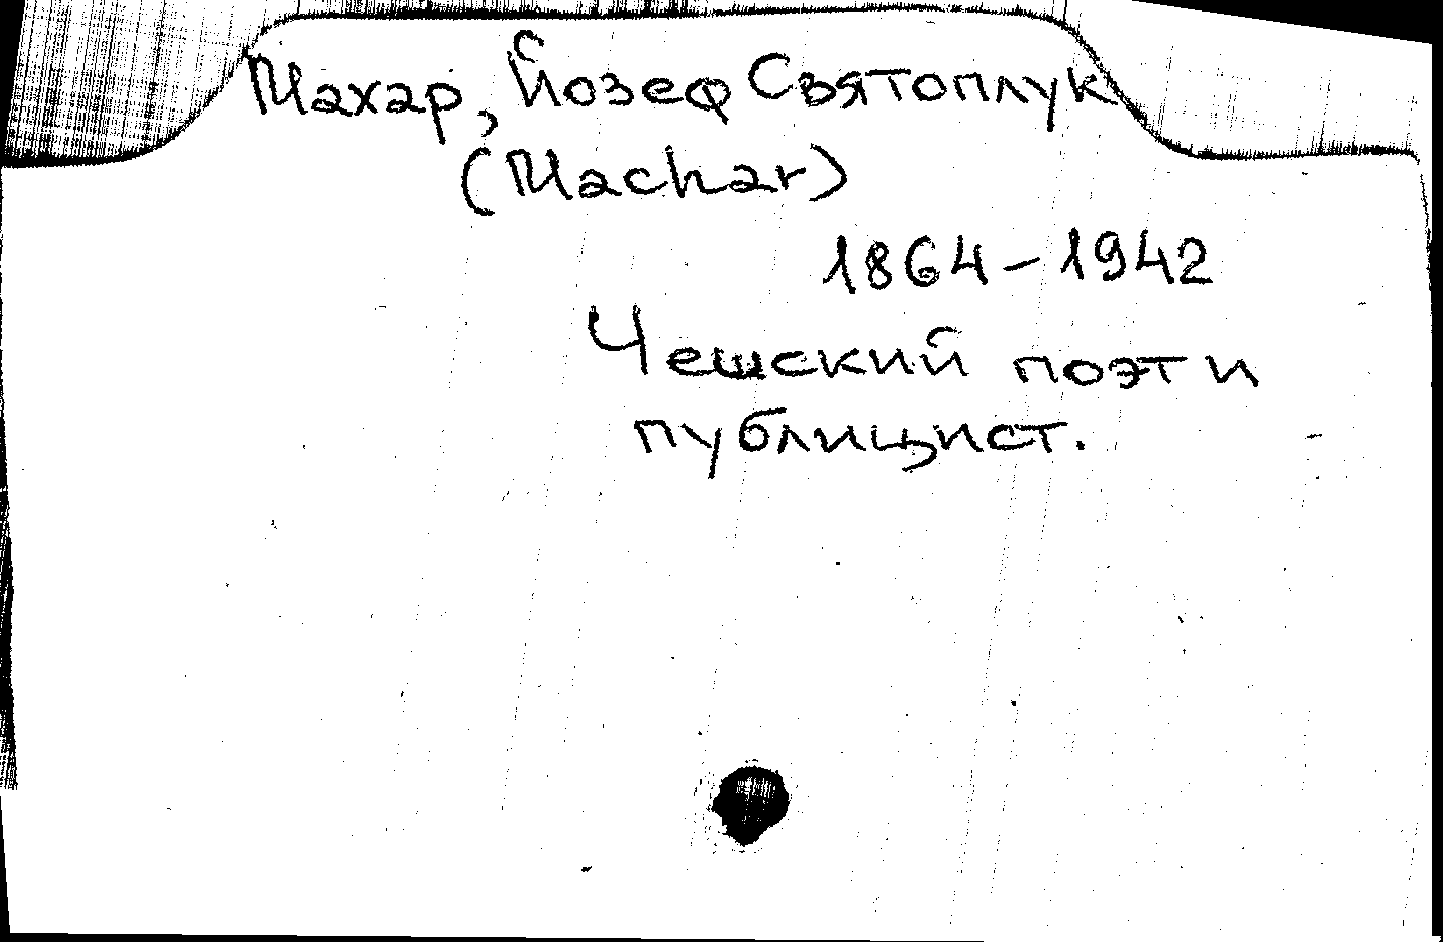 Махар, Йозеф Святоплук
(Machar)
1864-1942
Чешский поэт и
публицист.